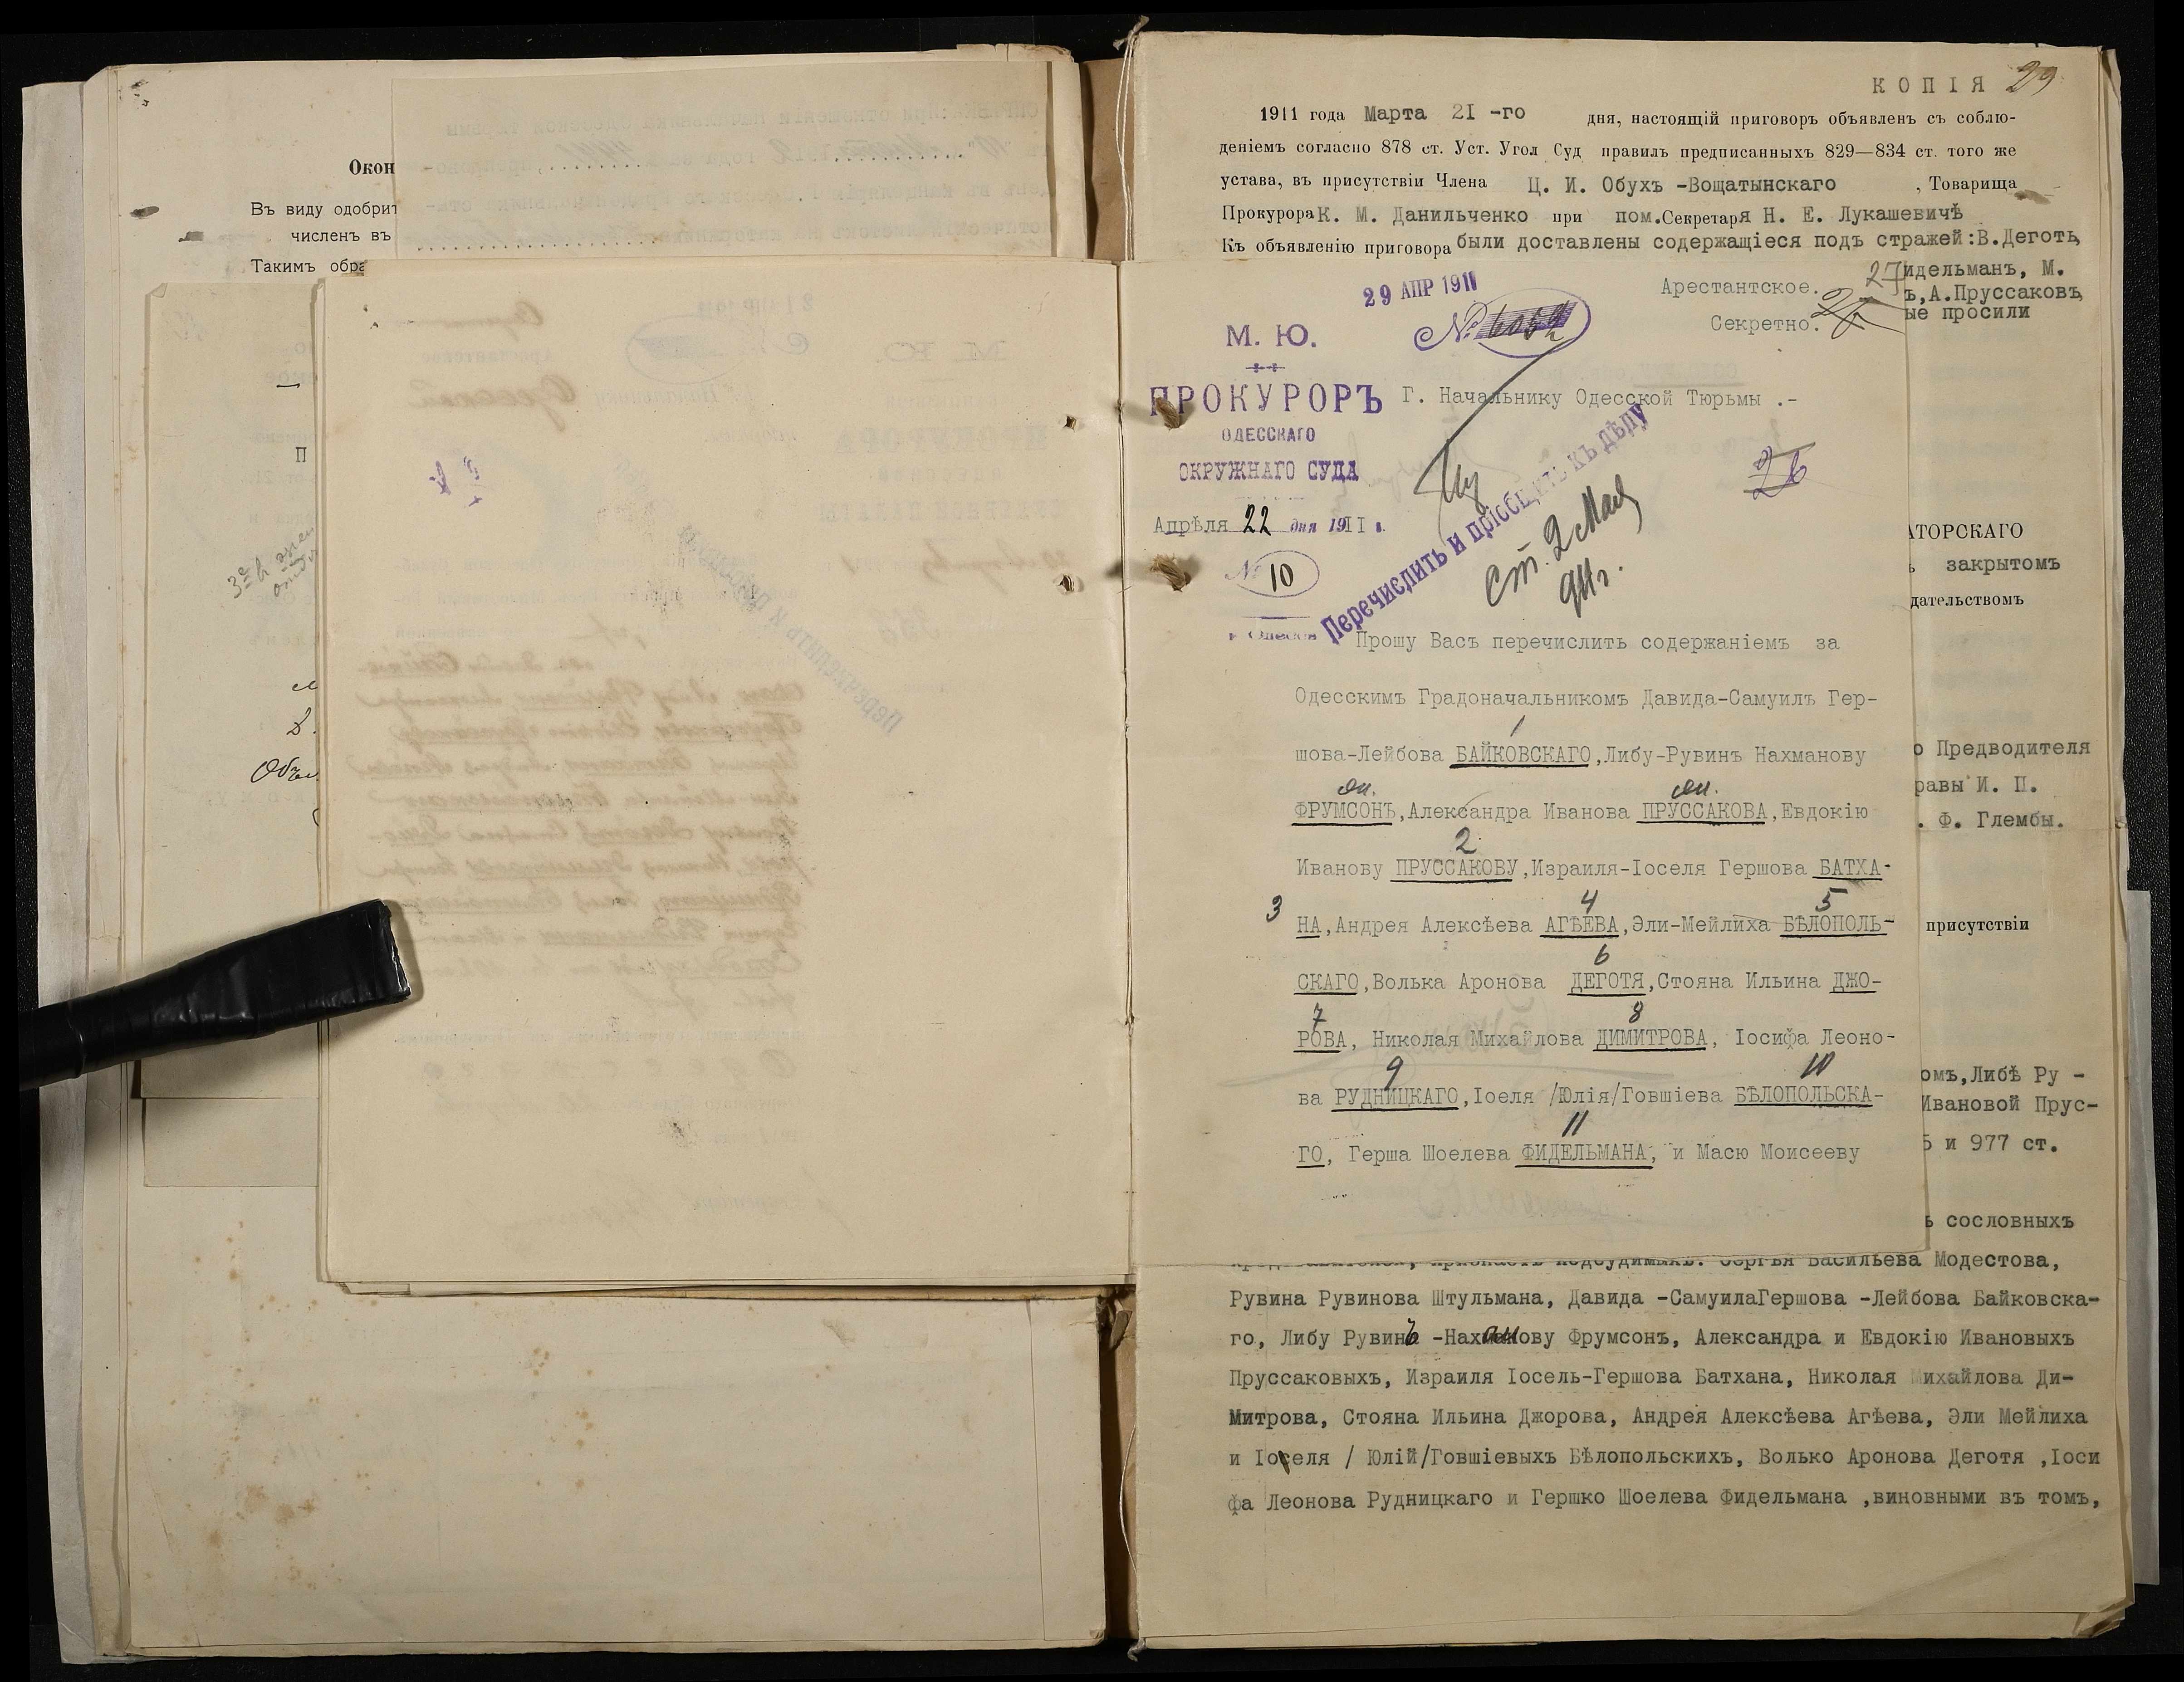 Окон
Въ виду одобрит
численъ въ
Такимъ обра
П
КОПІЯ 29
1911 года Марта 21 -го дня, настоящій приговоръ объявленъ съ соблю-
деніемъ согласно 878 ст. Уст. Угол Суд правилъ предписанныхъ 829—834 ст. того же
устава, въ присутствіи Члена Ц. И. Обухъ -Вощатынскаго , Товарища
Прокурора К. М. Данильченко при пом.Секретаря Н. Е. Лукашевичѣ
Къ объявленію приговора были доставлены содержащіеся подъ стражей:В.Деготь,
идельманъ, М.
ъ,А.Пруссаковъ,
ые просили
29 АПР 1911
Арестантское. 27
Секретно. 28
№ 6052
М. Ю.
ПРОКУРОРЪ
ОДЕССКАГО
ОКРУЖНАГО СУДА
Апрѣля 22 дня 1911 г.
№ 10
г. Одесса
Г. Начальнику Одесской Тюрьмы .-
26
Перечислить и пріобщить къ дѣлу
Ст. 2 Мая
911 г.
Прошу Васъ перечислить содержаніемъ за
Одесскимъ Градоначальникомъ Давида-Самуилъ Гер-
1
шова-Лейбова БАЙКОВСКАГО,Либу-Рувинъ Нахманову
ФРУМСОНЪ,Александра Иванова ПРУССАКОВА,Евдокію
2
Иванову ПРУССАКОВУ,Израиля-Іоселя Гершова БАТХА-
3 4 5
НА,Андрея Алексѣева АГѢЕВА,Эли-Мейлиха БѢЛОПОЛЬ-
6
СКАГО,Волька Аронова ДЕГОТЯ,Стояна Ильина ДЖО-
7 8
РОВА, Николая Михайлова ДИМИТРОВА, Іосифа Леоно-
9 10
ва РУДНИЦКАГО,Іоеля /Юлія/Говшіева БѢЛОПОЛЬСКА-
11
ГО, Герша Шоелева ФИДЕЛЬМАНА, и Масю Моисееву
АТОРСКАГО
ъ закрытомъ
дательствомъ
о Предводителя
равы И. П.
. Ф. Глембы.
присутствіи
омъ,Либѣ Ру -
Ивановой Прус-
5 и 977 ст.
ъ сословныхъ
представителей, признаетъ подсудимыхъ: Сергѣя Васильева Модестова,
Рувина Рувинова Штульмана, Давида -СамуилаГершова -Лейбова Байковска-
го, Либу Рувинъ -Нахманову Фрумсонъ, Александра и Евдокію Ивановыхъ
Пруссаковыхъ, Израиля Іосель-Гершова Батхана, Николая Михайлова Ди-
митрова, Стояна Ильина Джорова, Андрея Алексѣева Агѣева, Эли Мейлиха
и Іоселя / Юлій/Говшіевыхъ Бѣлопольскихъ, Волько Аронова Деготя ,Іоси
фа Леонова Рудницкаго и Гершко Шоелева Фидельмана ,виновными въ томъ,